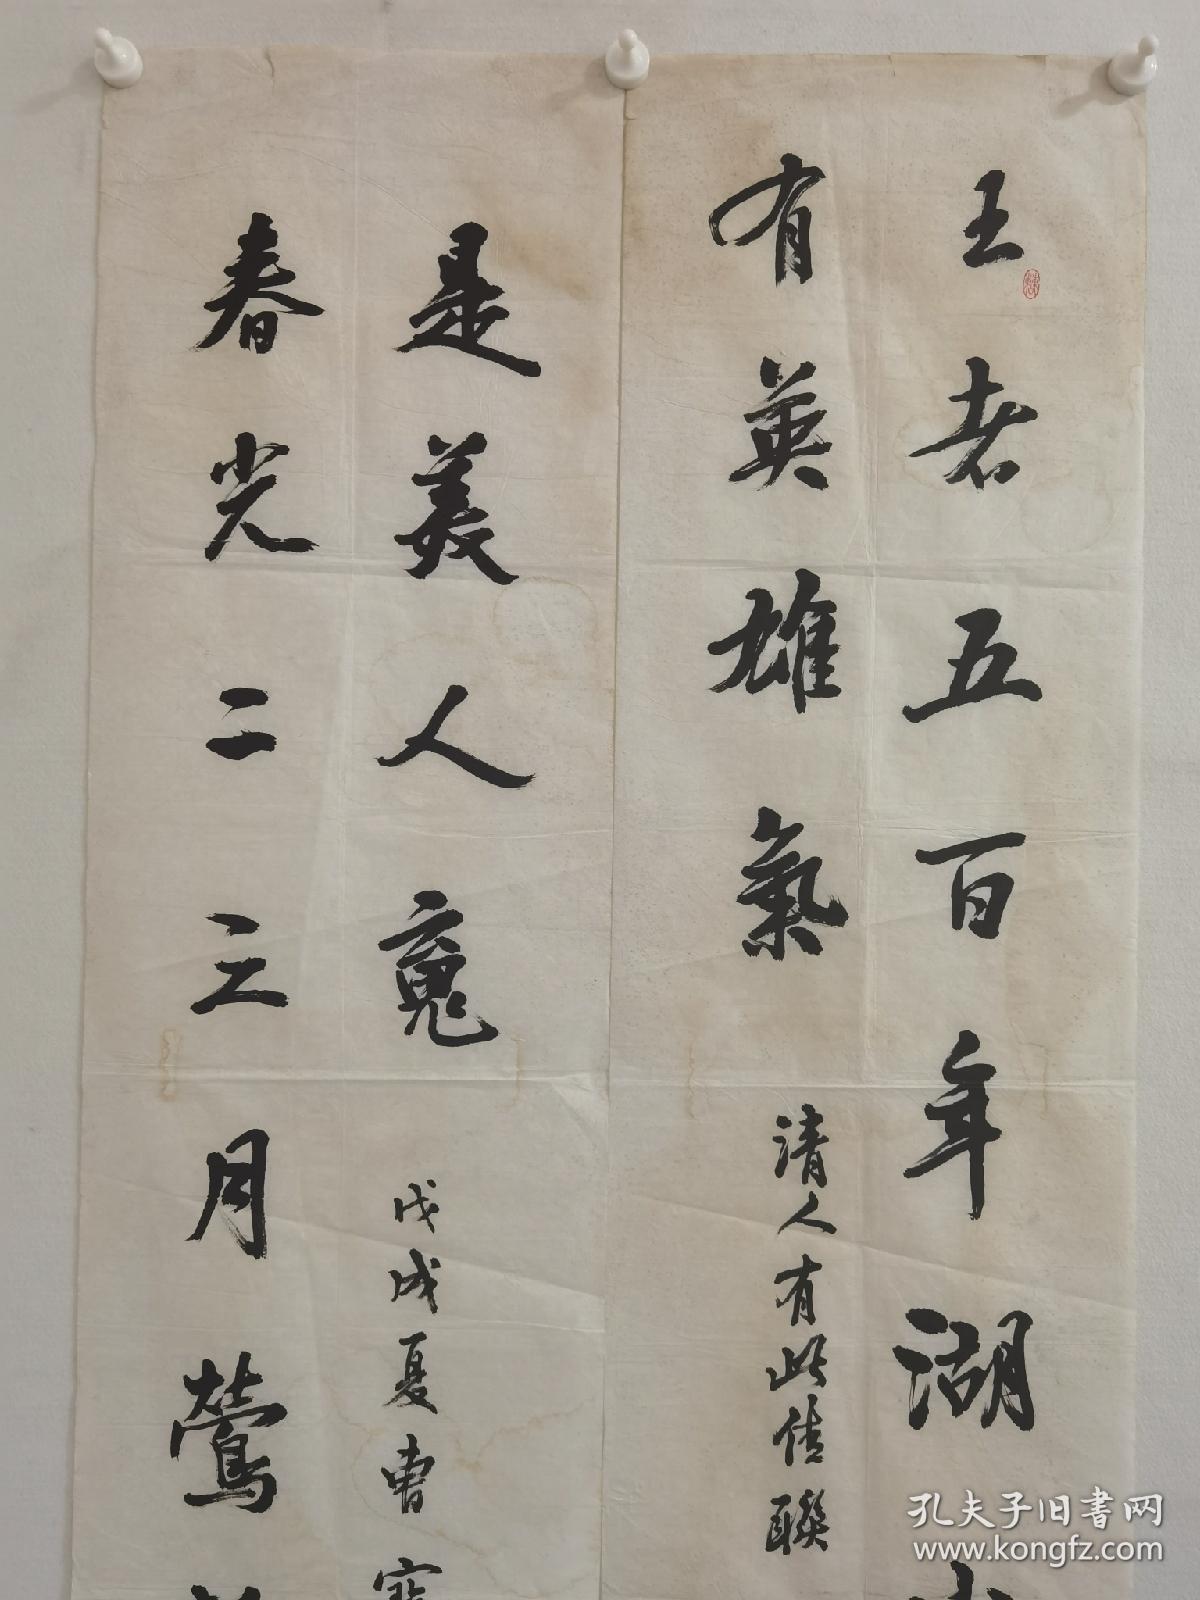 王者五百年湖
有英雄氣
清人有此佳聯
是美人魂
戊戌夏曹寶
春光二三月鶯
孔夫子旧书网
www.kongfz.com